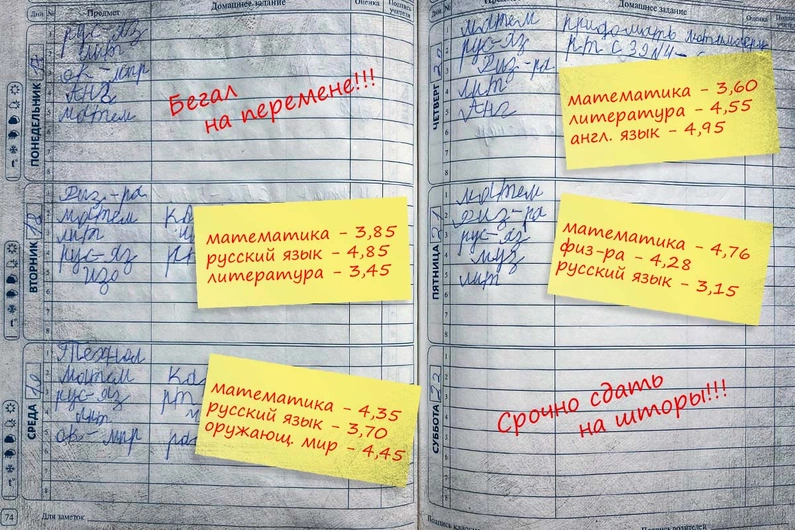 Предмет
Домашнее задание
Оценка
Подпись учителя
ПОНЕДЕЛЬНИК
рус-яз
лит
ок-мир
Анг
матем
Бегал
на перемене!!!
ВТОРНИК
Физ-ра
матем
лит
рус-яз
Изо
математика - 3,85
русский язык - 4,85
литература - 3,45
СРЕДА
Технол
матем
рус-яз
лит
ок-мир
математика - 4,35
русский язык - 3,70
оружающ. мир - 4,45
74
Для заметок
Предмет
Домашнее задание
Оценка
ЧЕТВЕРГ
матем
рус-яз
Физ-ра
лит
Анг
математика - 3,60
литература - 4,55
англ. язык - 4,95
ПЯТНИЦА
матем
Физ-ра
рус-яз
муз
лит
математика - 4,76
физ-ра - 4,28
русский язык - 3,15
СУББОТА
Срочно сдать
на шторы!!!
Подпись родителей